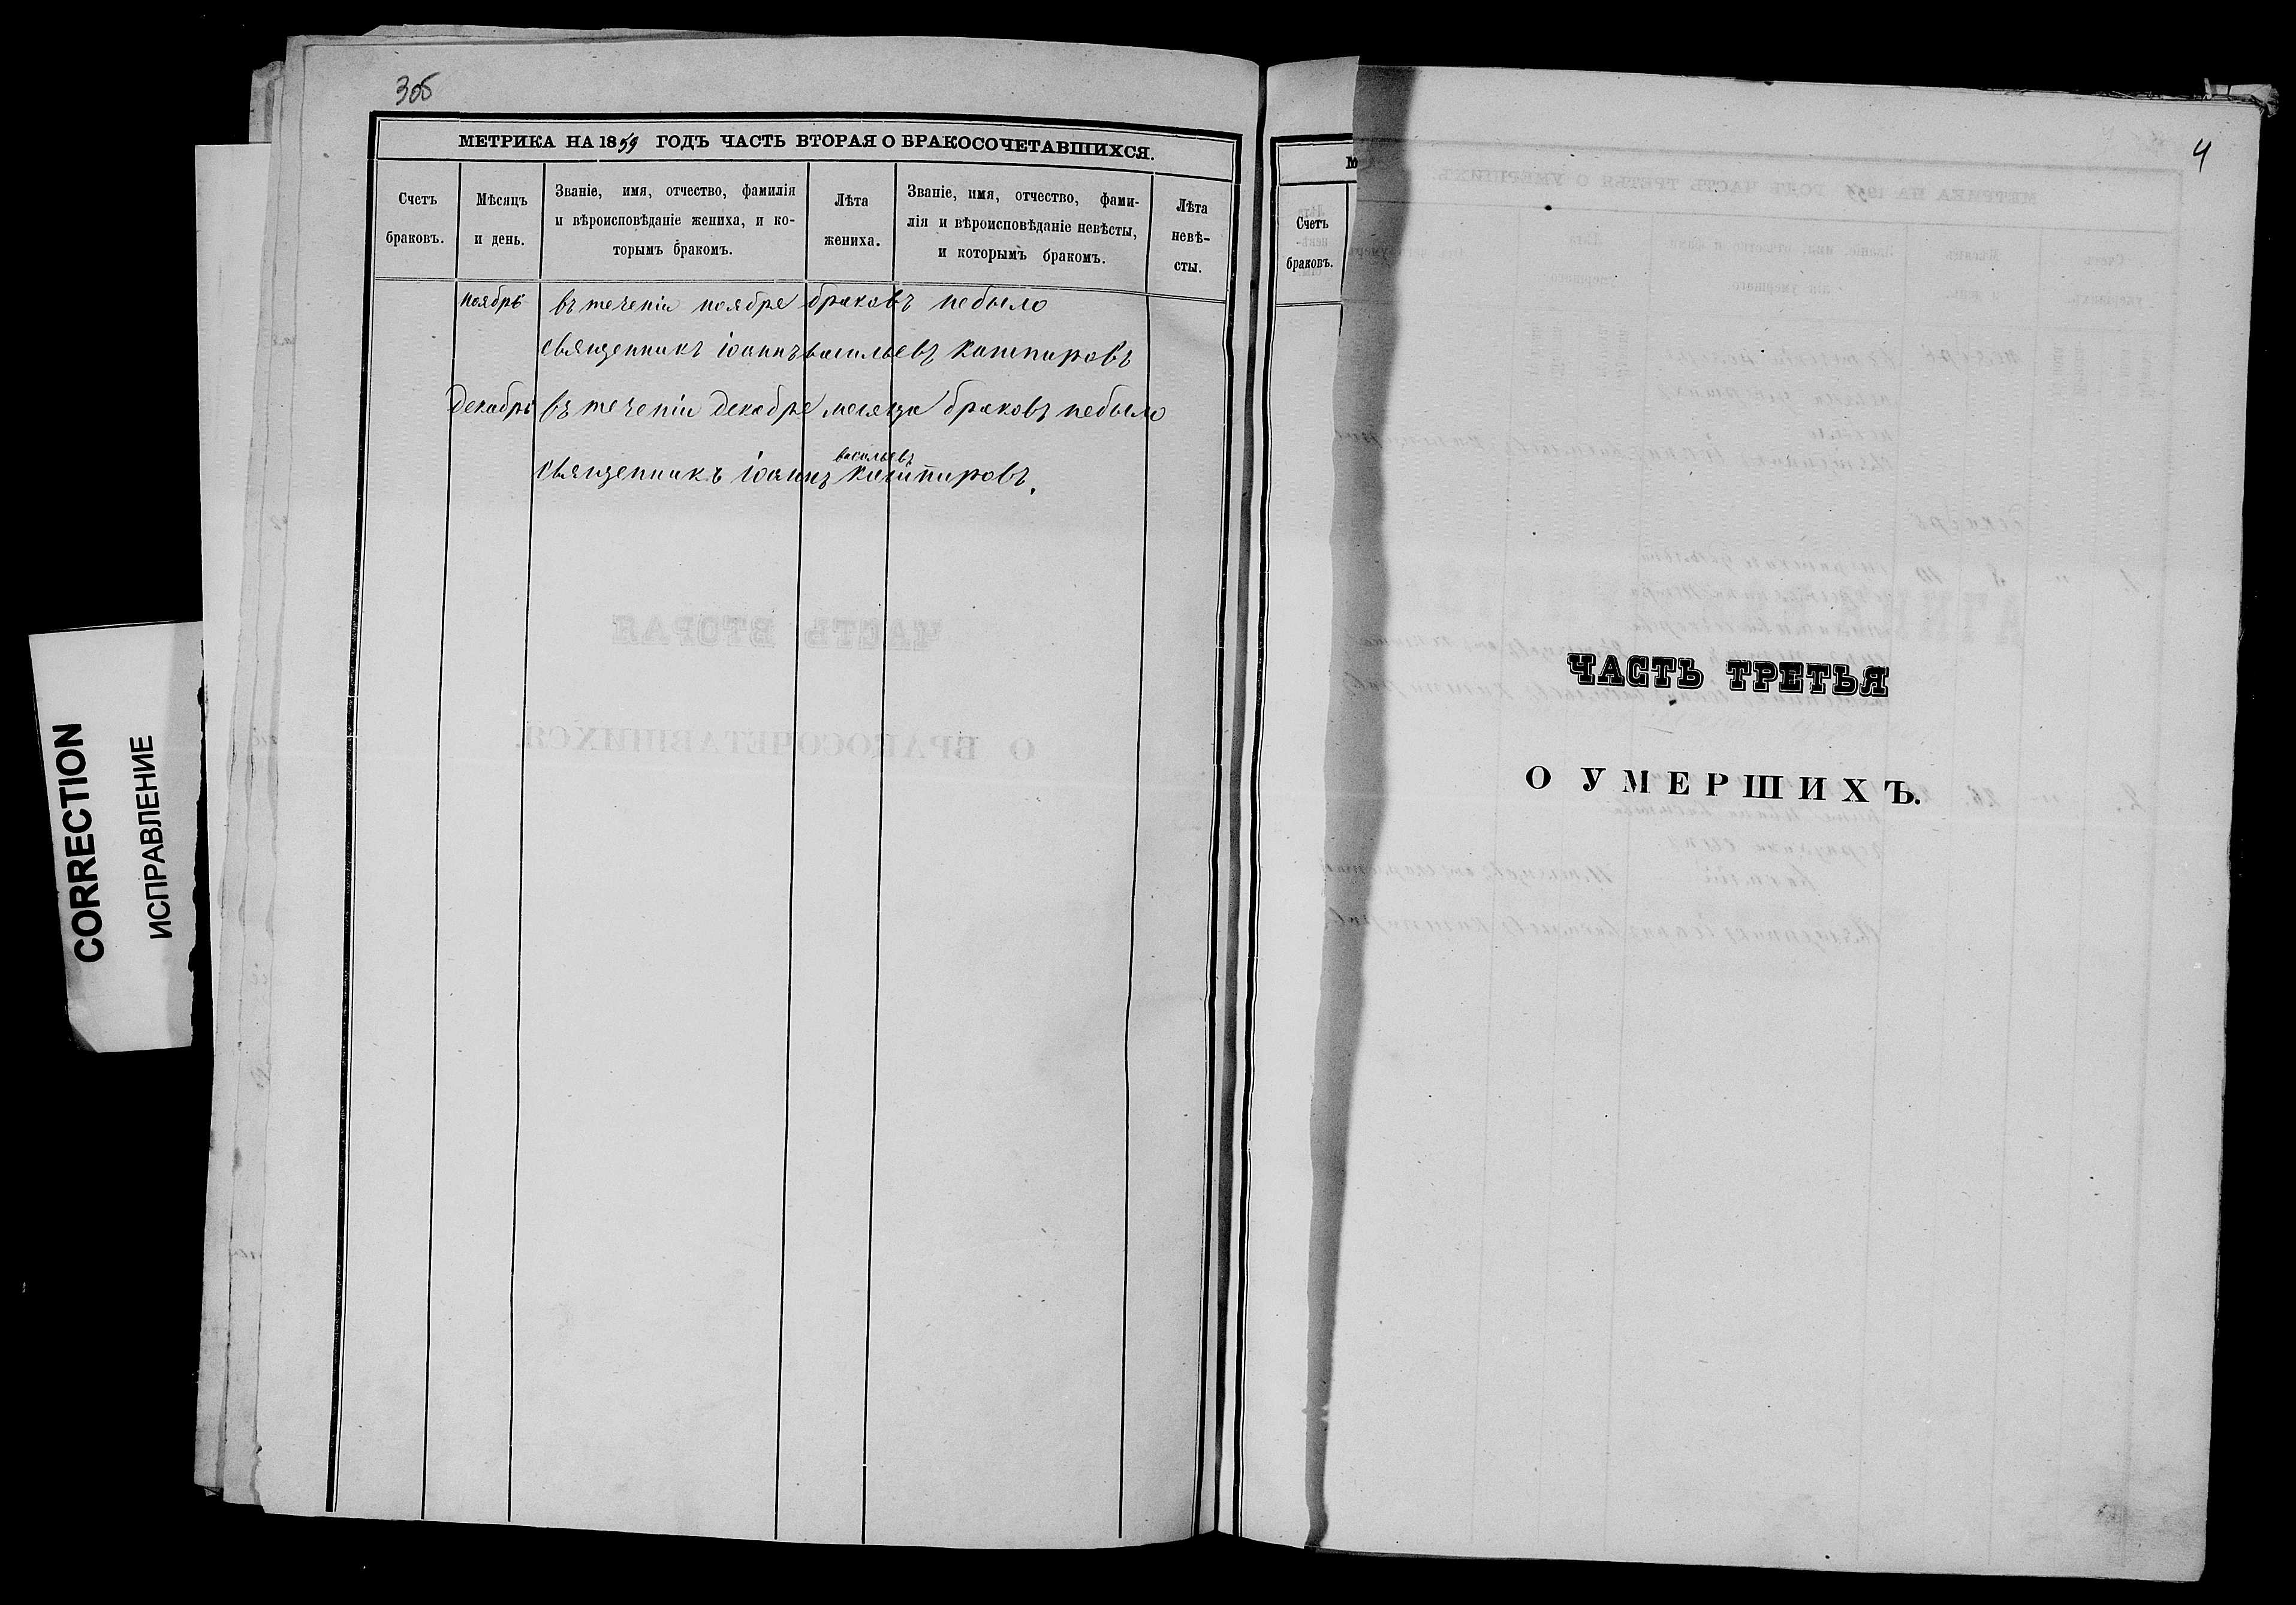 305
МЕТРИКА НА 1859 ГОДЪ ЧАСТЬ ВТОРАЯ О БРАКОСОЧЕТАВШИХСЯ.
Счетъ браковъ.
Мѣсяцъ и день.
Званіе, имя, отчество, фамилія
и вѣроисповѣданіе жениха, и ко-
торымъ бракомъ.
Лѣта жениха.
Званіе, имя, отчество, фами-
лія и вѣроисповѣданіе невѣсты,
и которымъ бракомъ.
Лѣта
невѣ-
сты.
ноябрь въ теченіи ноября браковъ небыло
священникъ іоаннъ васильевъ кашпировъ
декабрь въ теченіи декабря месяца браковъ небыло
васильевъ
священникъ іоаннъ кашпировъ.
Счетъ
браковъ.
4
ЧАСТЬ ТРЕТЬЯ
О УМЕРШИХЪ.
CORRECTION
ИСПРАВЛЕНИЕ